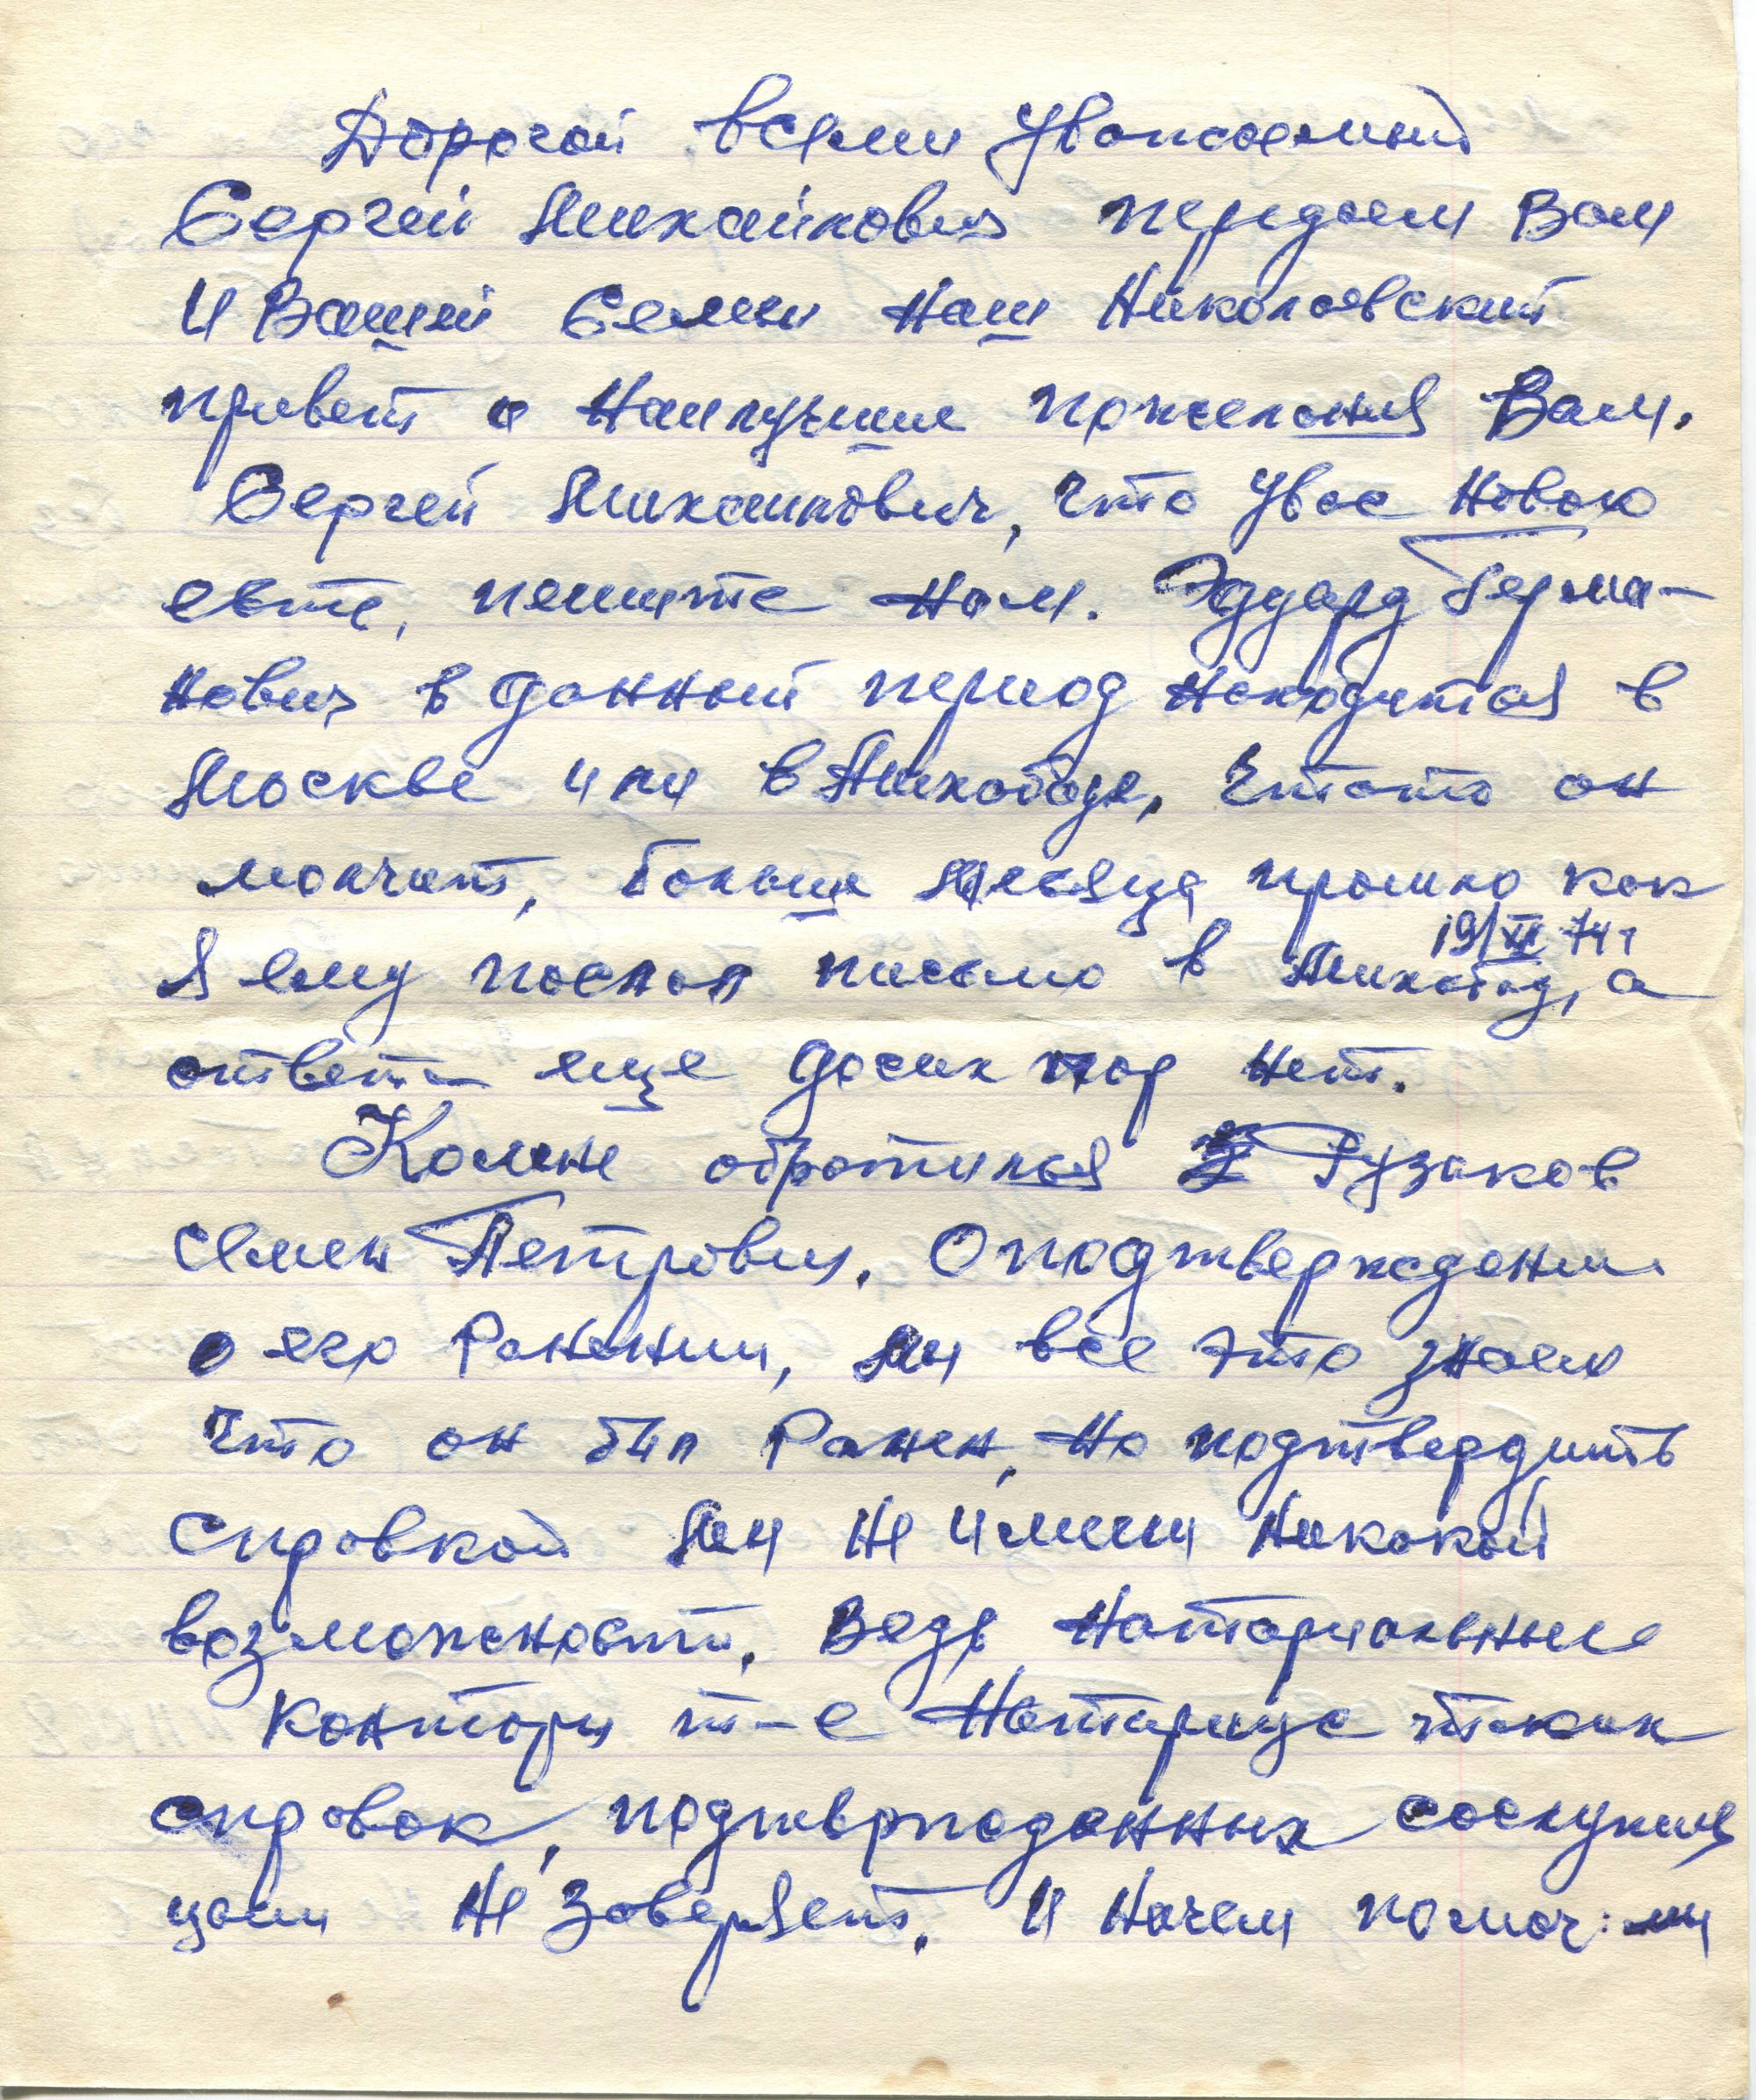 Дорогой, всеми уважаемый
Сергей Михайлович передаем Вам
и Вашей Семьи Наш Николаевский
привет и Наилучшие пожелания Вам.
Сергей Михайлович, что увас Новою
есте, пешите Нам. Эдуард Герма-
нович в данный период находится в
Москве или в Михабаде, чтото он
молчит, больше месяца прошло как
19/XI 74г
Я ему послал письмо в Михабад, а
ответа еще досих пор нет.
Комене обратился Гузаков
Семен Петрович. О подтверждении
о его Ранении, мы все это знаем
что он бил Ранен, но подтвердить
справкой Мы не имеем Никакой
возможности. Ведь Натариальные
канторы т-е Натариус таких
справок, подтверподанных сослужив
цами Не заверяет. И Ничем помоч: мы